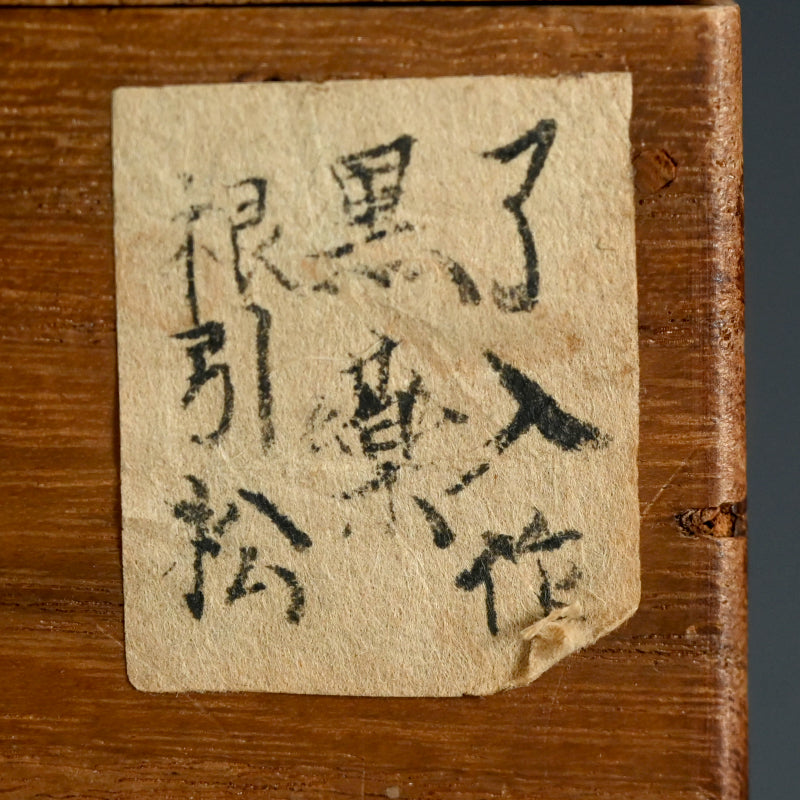 了入作
黒樂
根引松